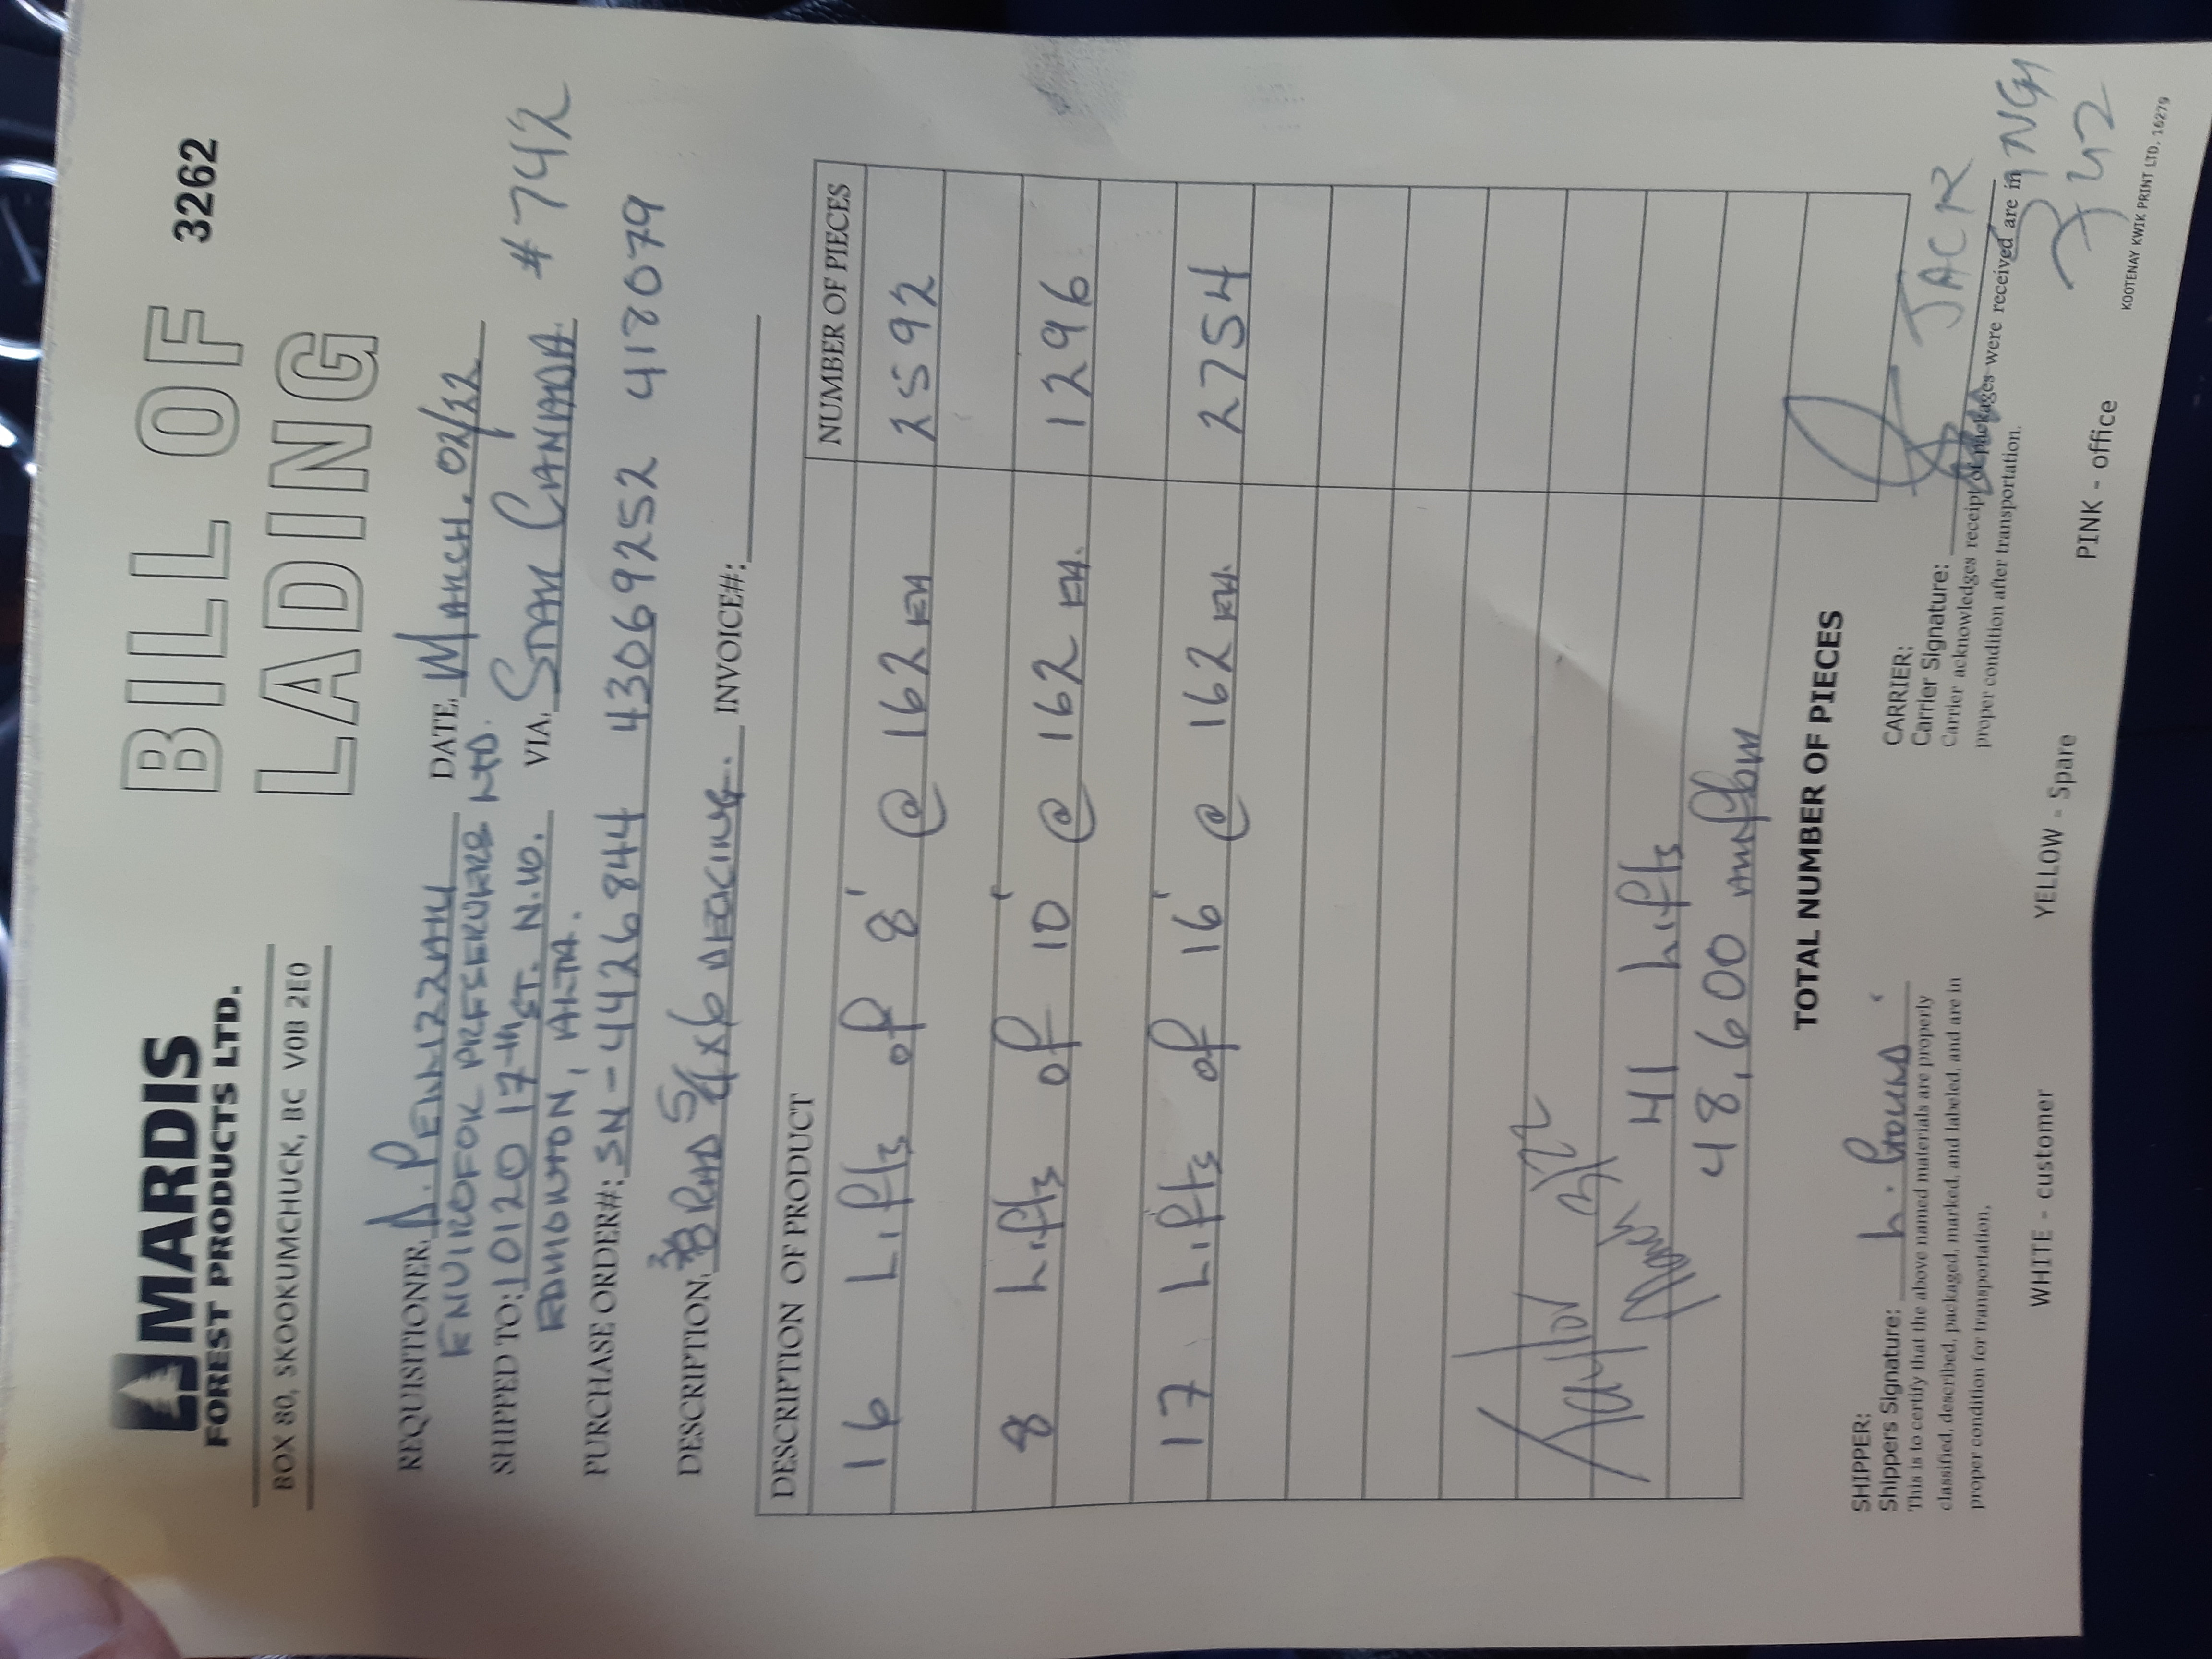 MARDIS
FOREST PRODUCTS LTD.
BOX 80, SKOOKUMCHUCK, BC V0B 2E0
BILL OF
LADING
3262
REQUISITIONER: D. PELLIZZARI
DATE: MARCH. 02/22
ENVIROFOR PRESERVERS LTD.
SHIPPED TO: 10120 17th ST. N.W.
VIA: STAR CANADA #742
EDMONTON, ALTA.
PURCHASE ORDER#: SN-4426844 43069252 418079
DESCRIPTION: RAD 5/4x6 DECKING.
INVOICE#:
DESCRIPTION OF PRODUCT NUMBER OF PIECES
16 Lifts of 8' @ 162 EA 2592
8 Lifts of 10' @ 162 EA. 1296
17 Lifts of 16' @ 162 EA. 2754
Taylor
March 3/22
41 Lifts
48,600 mfbm
TOTAL NUMBER OF PIECES
SHIPPER:
Shippers Signature: L. Gould
This is to certify that the above named materials are properly
classified, described, packaged, marked, and labeled, and are in
proper condition for transportation.
CARRIER:
Carrier Signature: JACK
Carrier acknowledges receipt of packages were received are in
proper condition after transportation.
SINGH
742
WHITE - customer YELLOW - Spare PINK - office
KOOTENAY KWIK PRINT LTD. 16279